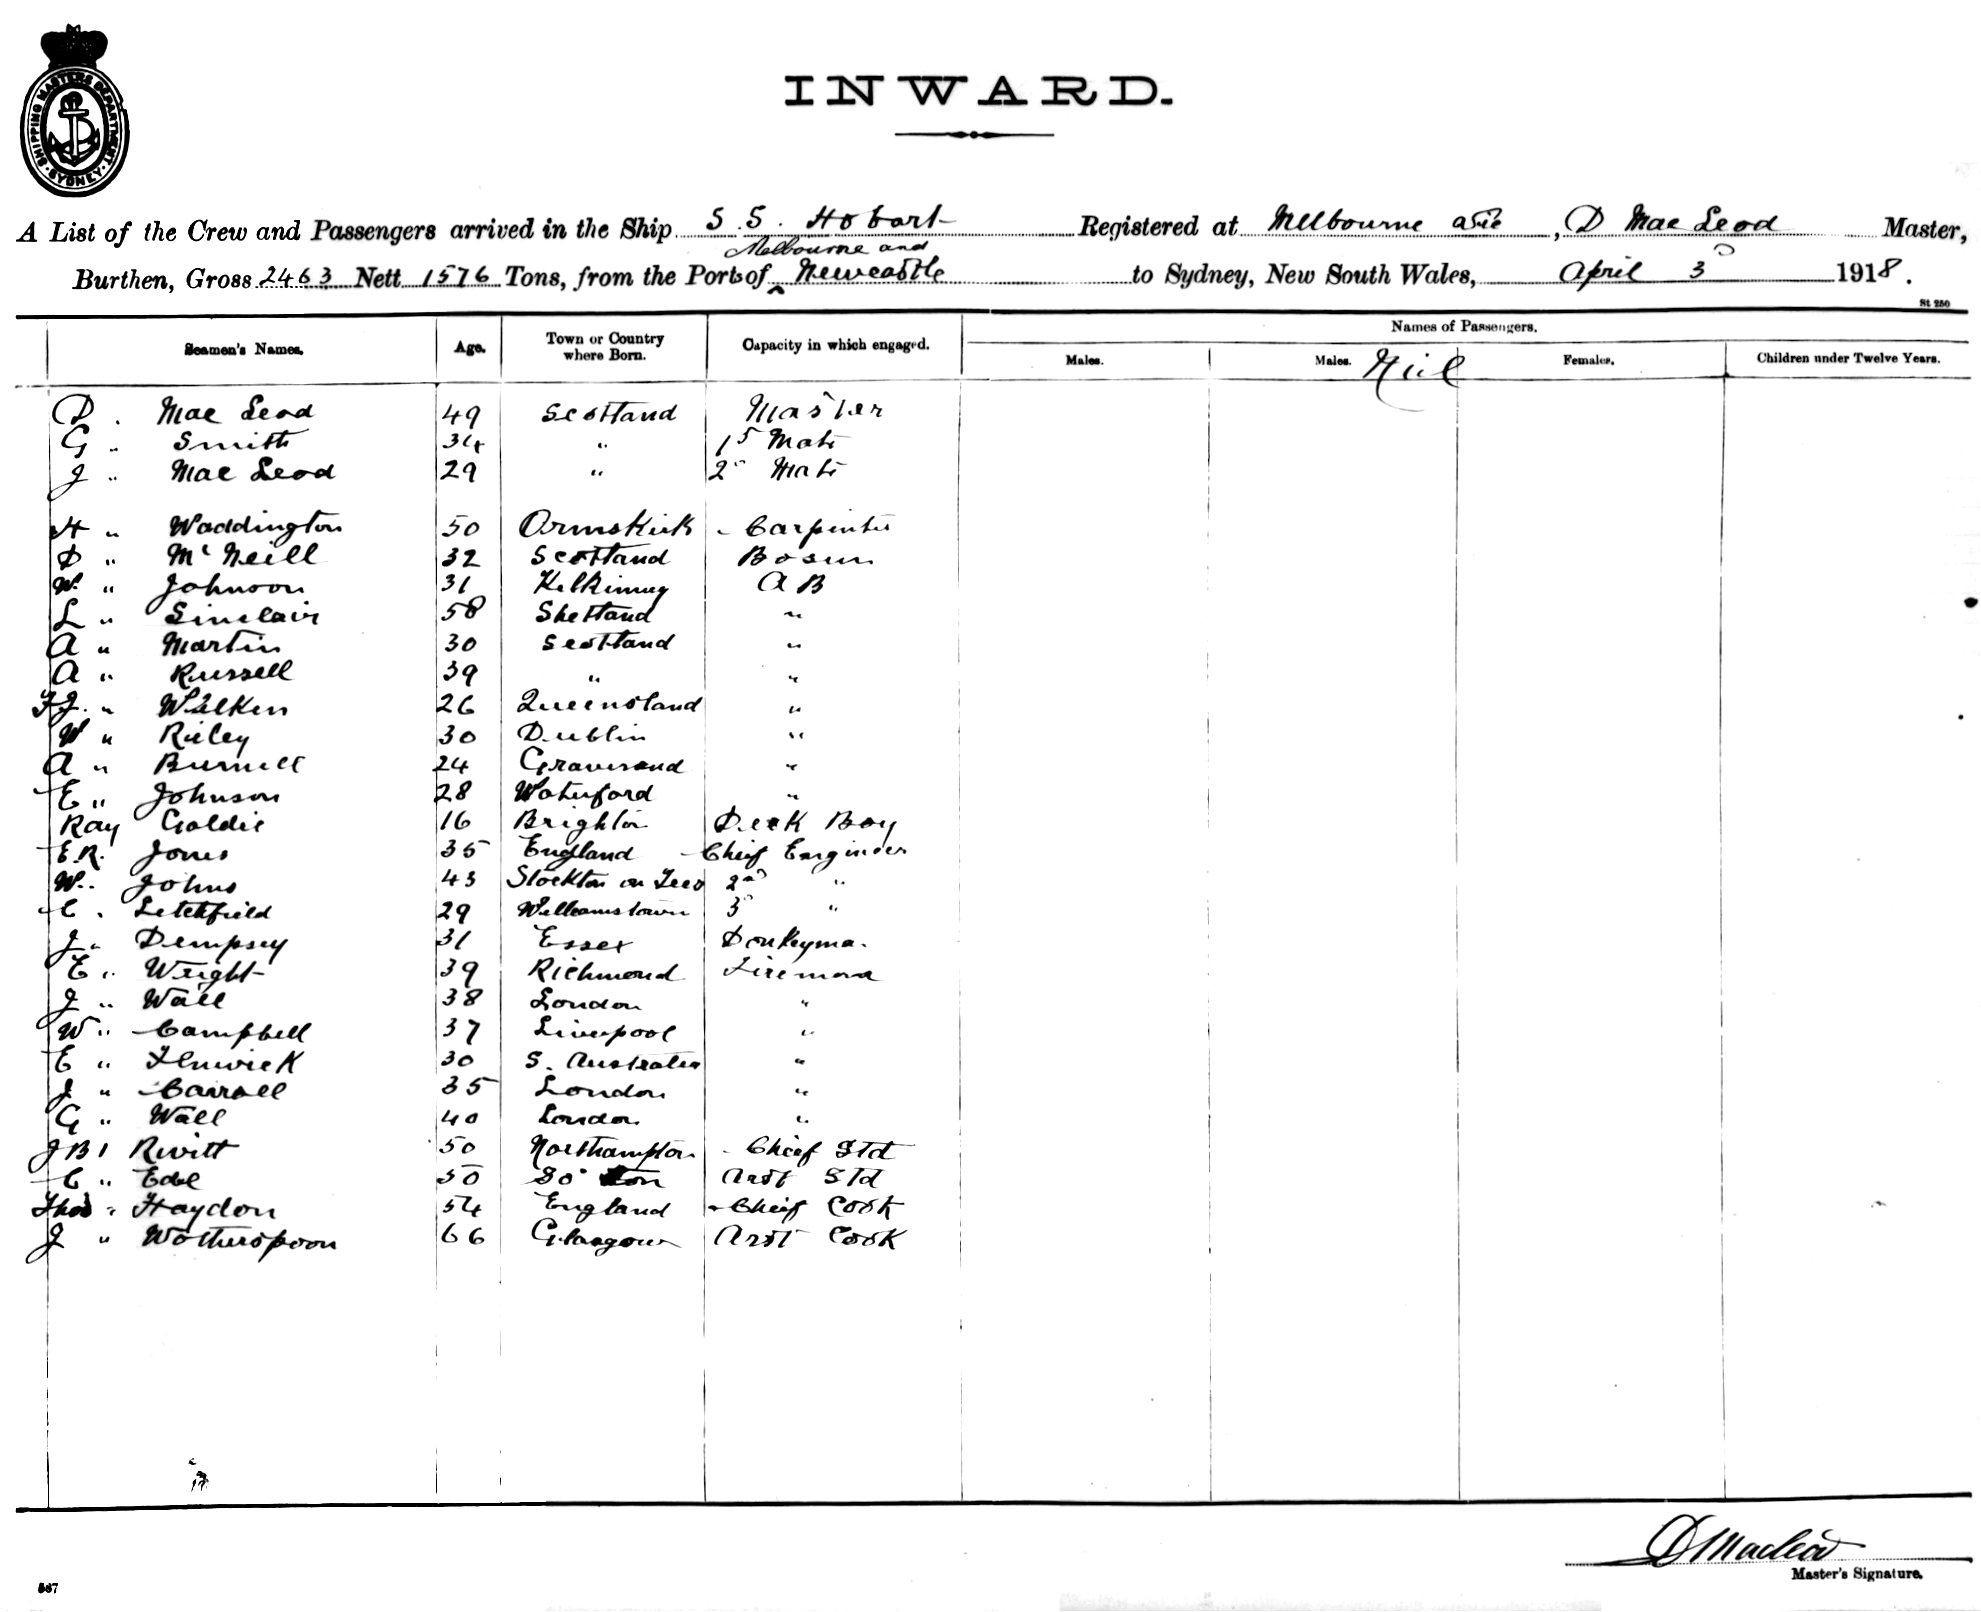 SHIPPING MASTERS DEPARTMENT SYDNEY
INWARD.
A List of the Crew and Passengers arrived in the Ship S.S. Hobart Registered at Melbourne , D MacLeod Master,
Melbourne and
Burthen, Gross 2463 Nett 1576 Tons, from the Ports of Newcastle to Sydney, New South Wales, April 3 1918.
St 250
Seamen's Names. Age. Town or Country where Born. Capacity in which engaged. Names of Passengers.
Males. Males. Females. Children under Twelve Years.
D. MacLeod 49 Scotland Master
G " Smith 34 " 1s Mate
J " MacLeod 29 " 2 Mate
H " Waddington 50 Ormskirk Carpenter
D " McNeill 32 Scotland Bosun
W. " Johnson 31 Kilkinney AB
L " Sinclair 58 Shetland "
A " Martin 30 Scotland "
A " Russell 39 " "
F J. " Walken 26 Queensland "
W " Rieley 30 Dublin "
A " Burnell 24 Gravesend "
E " Johnson 28 Waterford "
Ray Goldie 16 Brighton Deck Boy
E.R. Jones 35 England Chief Enginder
W. Johns 43 Stockton on Tees 2nd "
C. Letchfield 29 Williamstown 3 "
J. Dempsey 31 Essex Donkeyma.
E. Wright 39 Richmond Fireman
J " Wall 38 London "
W " Campbell 37 Liverpool "
E " Fenwick 30 S. Australia "
J " Carroll 35 London "
G " Wall 40 London "
J B Rivitt 50 Northampton Chief Std
C " Edel 50 So'ton Asst Std
Thos " Haydon 54 England Chief Cook
J " Wotherspoon 66 Glasgow Asst Cook
D Macleod
Master's Signature.
567